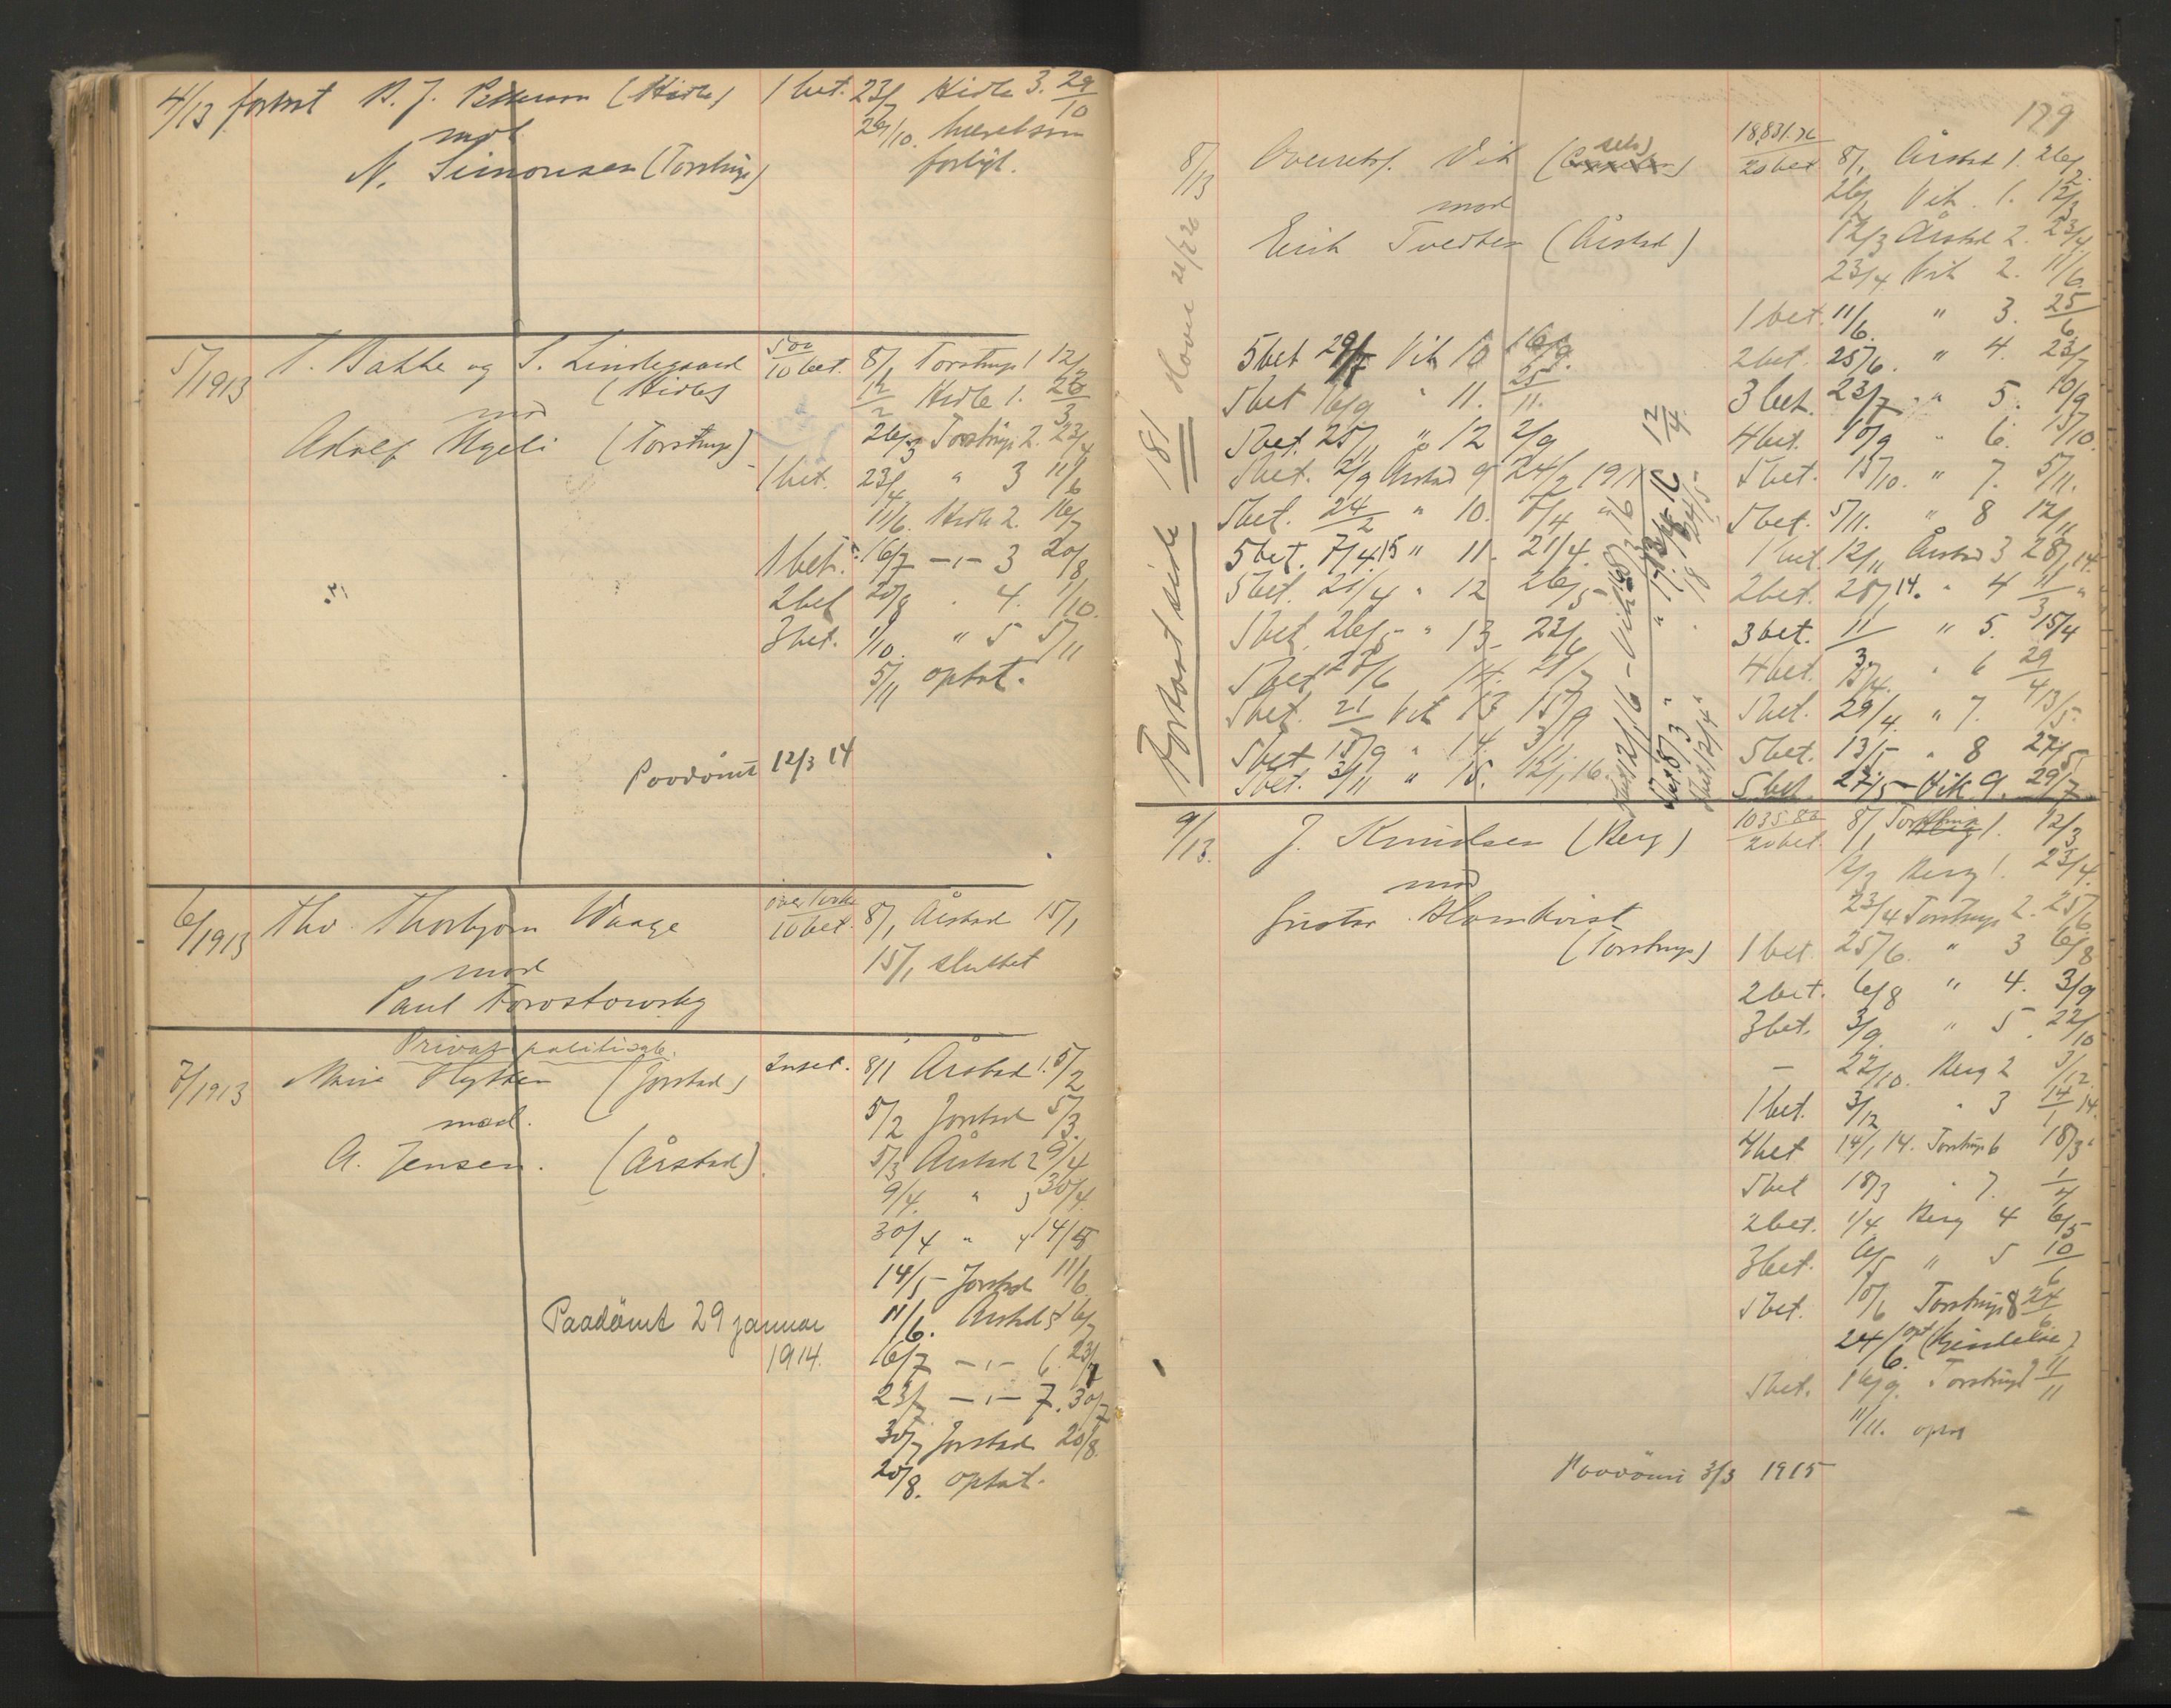 4/13 fortsat B. J. Petterson (Hidle) 1 bet. 23/7 Hidle 3. 29/10
mot 29/10. hævet som
N. Simonsen (Torstrup) forligt.
5/1913 T. Bakke og S. Lindegaard 500/10 bet. 8/1 Torstrup 1 12/2
(Hidle) 12/2 Hidle 1. 26/3
mod
Adolf Nygeli (Torstrup) 26/3 Torstrup 2. 23/4
1 bet. 23/4 " 3 11/6
11/6. Hidle 2. 16/7
1 bet. 16/7 -"- 3 20/8
2 bet 20/8 " 4. 1/10.
3 bet. 1/10. " 5 5/11
5/11 optat.
Paadömt 12/3 14
6/1913 Thv. Thorbjørn Waage 10 bet. 8/1 Årstad 15/1
mod 15/1 sluttet
Paul Forostowsky
Privat politisak.
7/1913 Marie Flytten (Jorstad) 8/1 Årstad 1. 5/2
mod. 5/2 Jorstad 5/3.
A. Jensen. (Årstad). 5/3 Årstad 2 9/4
9/4. " 3 30/4.
30/4 " 4 14/5
14/5 - Jorstad 11/6
11/6. Årstad 5 16/7
16/7 -"- 6. 23/7
23/7 -"- 7. 30/7
30/7 Jorstad 20/8.
20/8. optat.
Paadömt 29 januar
1914.
179
8/13 Overretssf. Vik (selv) 20 bet 8/1 Årstad 1. 26/2.
mod 26/2 Vik. 1. 12/3
Erik Tvedten (Årstad) 12/3 Årstad 2. 23/4.
23/4 Vik 2. 11/6.
1 bet. 11/6. " 3. 25/6
2 bet. 25/6. " 4. 23/7
3 bet. 23/7 " 5. 10/9
4 bet. 10/9 " 6. 15/10.
5 bet. 15/10. " 7. 5/11.
5 bet. 5/11. " 8 12/11
1 bet. 12/11 Årstad 3 28/1 14.
2 bet. 28/1 14. " 4 11/3 "
3 bet. 11/3 " 5. 15/4
4 bet. 15/4. " 6 29/4
5 bet. 29/4. " 7. 13/5.
5 bet. 13/5 " 8 27/5
5 bet. 27/5 - Vik 9. 29/7
5 bet 29/7 Vik 10 16/9.
5 bet 16/9 " 11. 25/11.
5 bet. 25/11 " 12 2/9
5 bet. 2/9 Årstad 9 24/2 1915
5 bet. 24/2 " 10. 7/4 "
5 bet. 7/4. 15 " 11. 21/4.
5 bet. 21/4 " 12 26/5
5 bet. 26/5 - " 13 23/6
5 bet 23/6 14. 21/7
5 bet. 21 Vik 13 15/9
5 bet 15/9 " 14. 3/11
5 bet. 3/11 " 15. 12/1 16.
Fortsat side 181
9/13. J. Knudsen (Berg) 20 bet. 8/1 Torstrup 1. 12/3
mod 12/3 Berg 1. 23/4.
Gustav Blomkvist 23/4 Torstrup 2. 25/6
(Torstrup) 1 bet. 25/6. " 3 6/8
2 bet. 6/8 " 4. 3/9
3 bet. 3/9. " 5. 22/10
- 22/10. Berg 2 3/12.
1 bet. 3/12 " 3 14/1 14.
4 bet 14/1 14. Torstrup 6 18/3
5 bet 18/3 " 7. 1/4
2 bet. 1/4 Berg 4 6/5
3 bet. 6/5 " 5 10/6
5 bet. 10/6 Torstrup 8 24/6
24/6. opt (kjendelse)
5 bet. 16/9. Torstrup 9 11/11
11/11. opt
Paadömt 3/3 1915